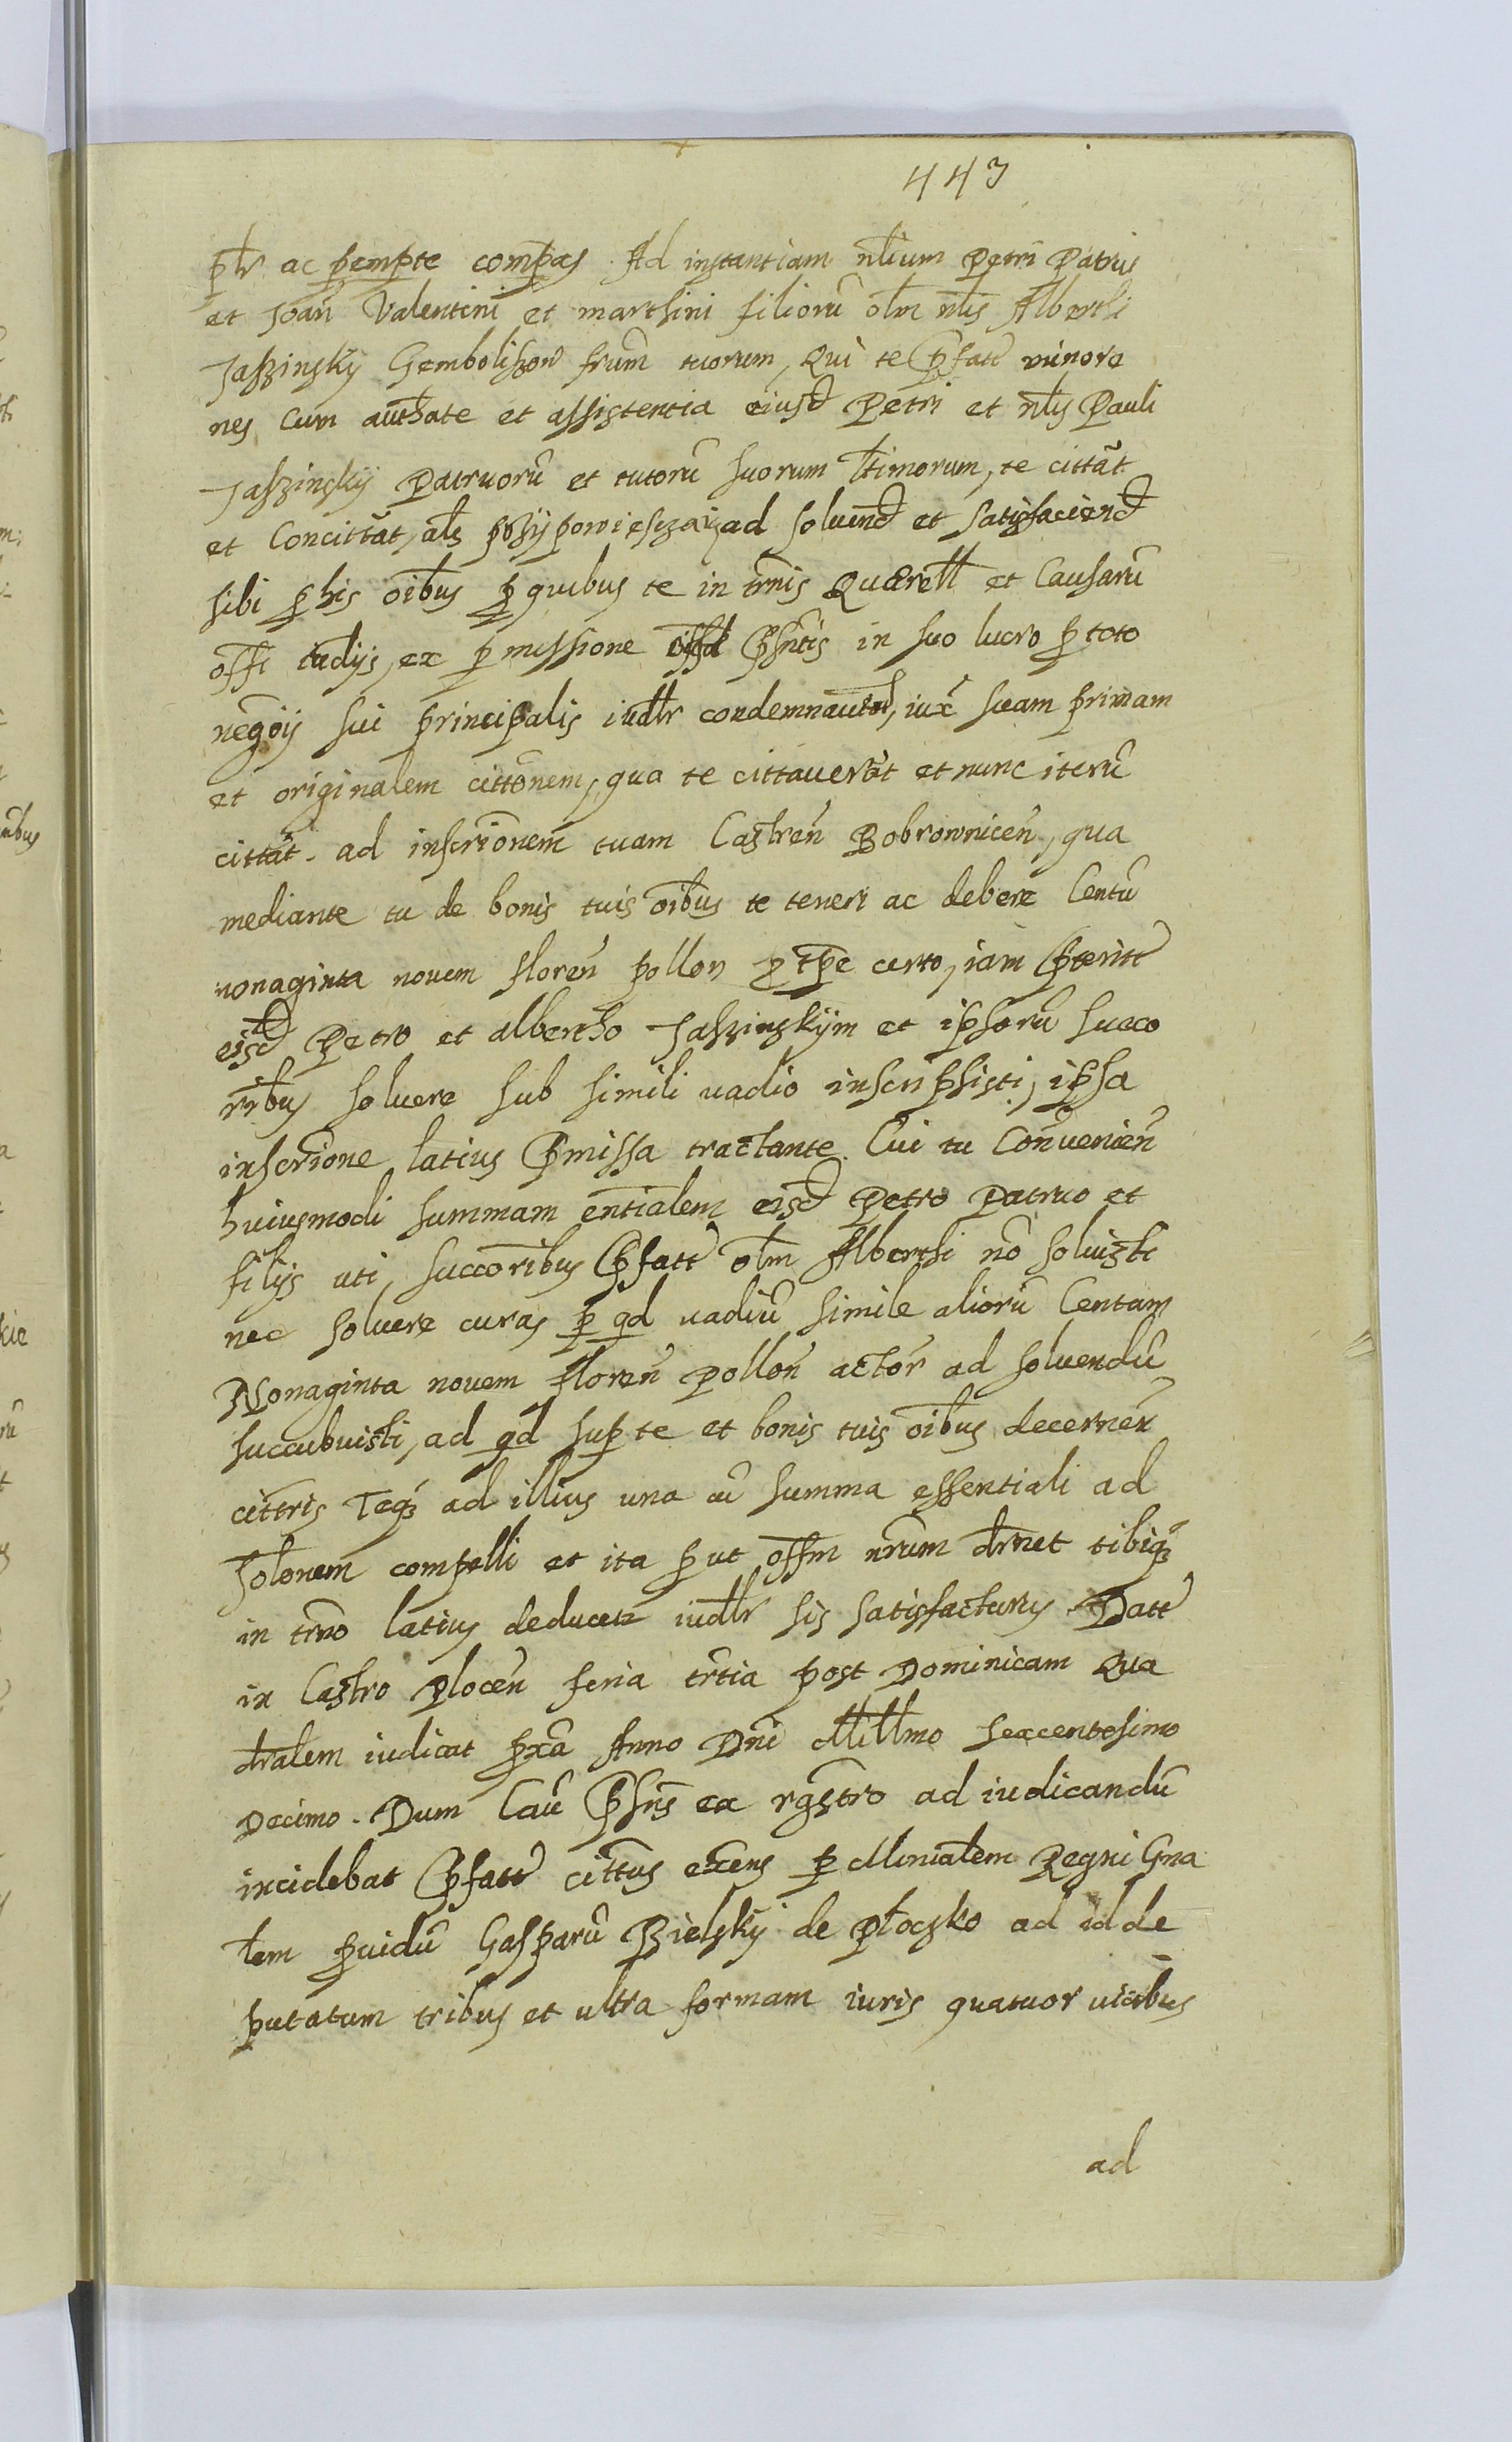 443
ptr ac pempte compas. Ad instantiam nlium Petri Patrui
et Joan Valentini et marthini filioru olm nlis Alberthi
Jasszinsky Gembolissow frum tuorum, Qui te Pfatt minore
nes cum authate et assistentia eiusd Petri et nlis Pauli
Jasszinskÿ Patruoru et tutoru suorum ltimorum, te cittat
et Concittat, als pszÿpowiesczaią ad soluend et satisfaciend
sibi p his oibus p quibus te in trnis Querell et Causaru
offi tudijs, ex pmissione offd Psntis in suo lucro p toto
negoij sui principalis iudlr condemnauit, iux suam primam
et originalem cittonem, qua te cittauerat et nunc iteru
cittat. ad inscrionem tuam Castren Bobrownicen, qua
mediante tu de bonis tuis oibus te teneri ac debere Centu
nonaginta novem floren pollon p tpe certo, iam Pterito
eisd Petro et albertho Jasszinskÿm et ipsoru succo
ribus soluere sub simili vadio inscripsisti, ipsa
inscrione latius Pmissa tractante. Cui tu Convenien
huiusmodi summam entialem eisd Petro Patruo et
filijs uti, succoribus Pfatt olm Alberthi no soluisti
nec soluere curas p qd vadiu simile alioru Centam
Nonaginta novem floren Pollon actor ad soluendu
succubuisti, ad qd sup te et bonis tuis oibus decernen
cittris Teq ad illius una cu summa essentiali ad
solonem compelli et ita put offm nrum drnet tibiq
in trno latius deducetr iudlr sis satisfacturus. Datt
in Castro Plocen feria trtia post Dominicam Qua
dralem iudicat pxa Anno Dni Millmo sexcentesimo
Decimo. Dum Cau Psns ex rgstro ad iudicandu
incidebat Pfatt cittus exens p Mnialem Regni Gna
lem puidu Gasparu Bielskÿ de Płoczko ad id de
putatum tribus et ultra formam iuris quatuor uicibus
ad